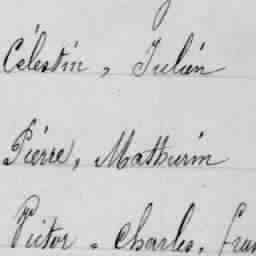 Célestin, Julien
Pierre, Mathurin
Victor. Charles. fran